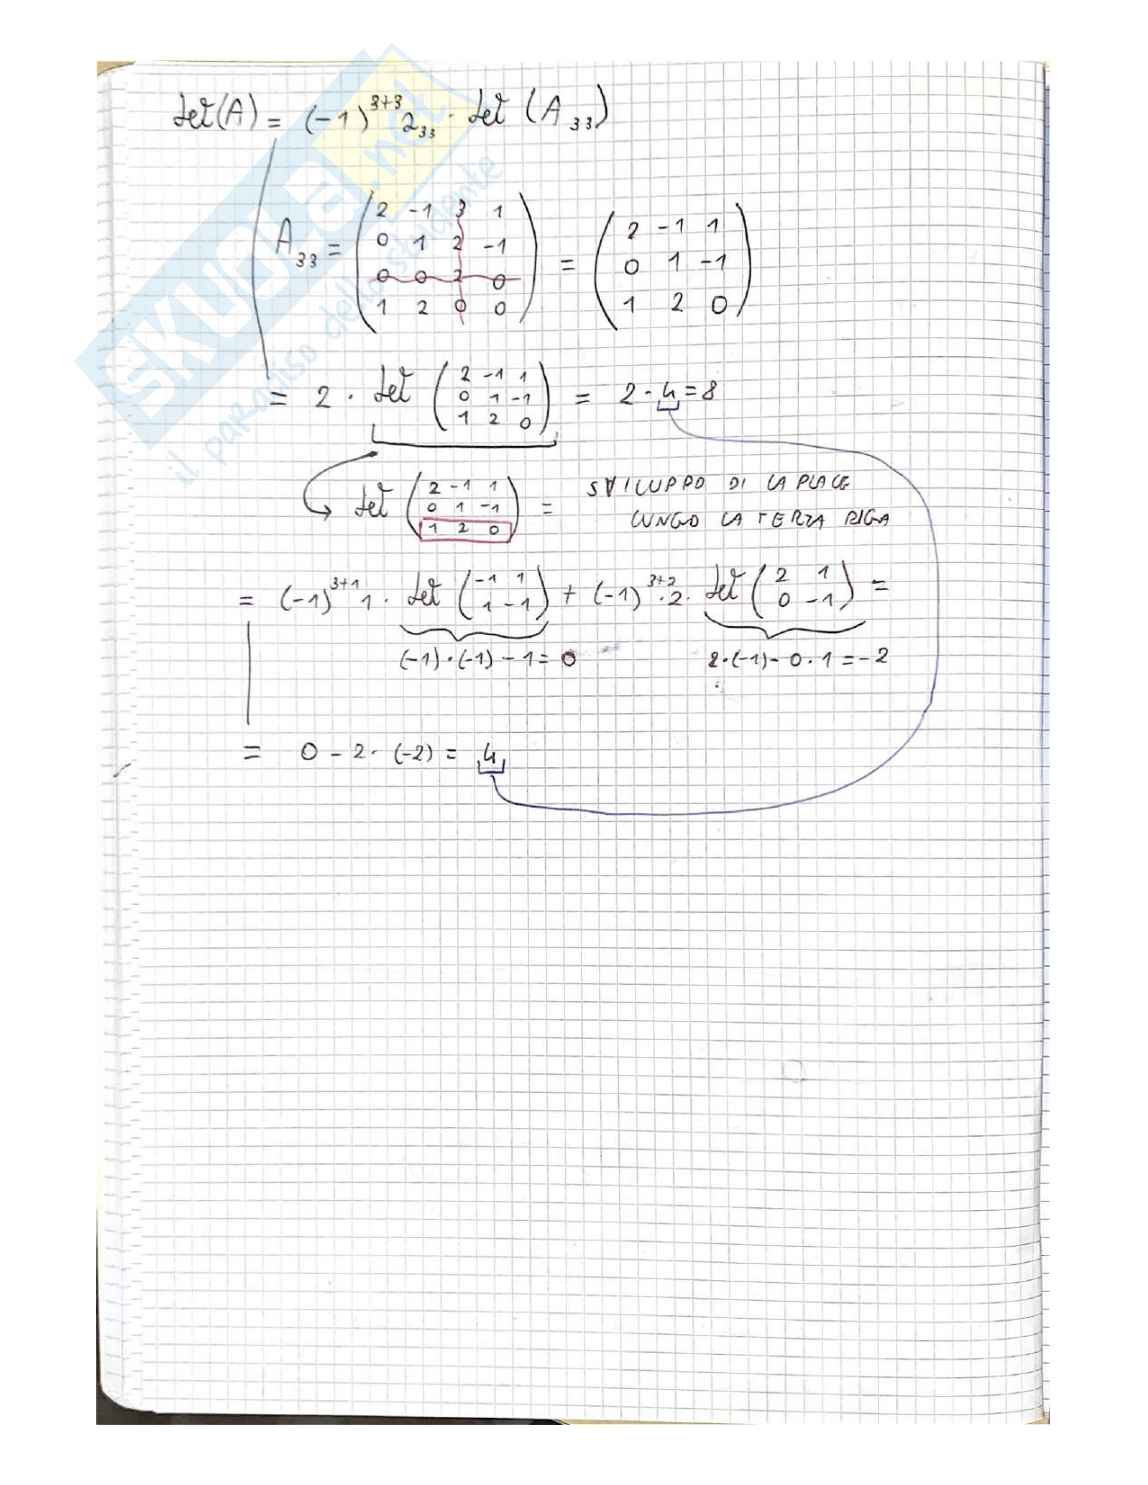 det(A) = (-1)^{3+3} a_{33} · det (A_{33})
A_{33} = \begin{pmatrix} 2 & -1 & 3 & 1 \\ 0 & 1 & 2 & -1 \\ 0 & 0 & 2 & 0 \\ 1 & 2 & 0 & 0 \end{pmatrix} = \begin{pmatrix} 2 & -1 & 1 \\ 0 & 1 & -1 \\ 1 & 2 & 0 \end{pmatrix}
= 2 · det \begin{pmatrix} 2 & -1 & 1 \\ 0 & 1 & -1 \\ 1 & 2 & 0 \end{pmatrix} = 2 · 4 = 8
det \begin{pmatrix} 2 & -1 & 1 \\ 0 & 1 & -1 \\ 1 & 2 & 0 \end{pmatrix} = SVILUPPO DI LAPLACE
LUNGO LA TERZA RIGA
= (-1)^{3+1} 1 · det \begin{pmatrix} -1 & 1 \\ 1 & -1 \end{pmatrix} + (-1)^{3+2} · 2 · det \begin{pmatrix} 2 & 1 \\ 0 & -1 \end{pmatrix} =
(-1)·(-1) - 1 = 0 2·(-1) - 0·1 = -2
= 0 - 2 · (-2) = 4
SKUOLA.net
il paradiso dello studente